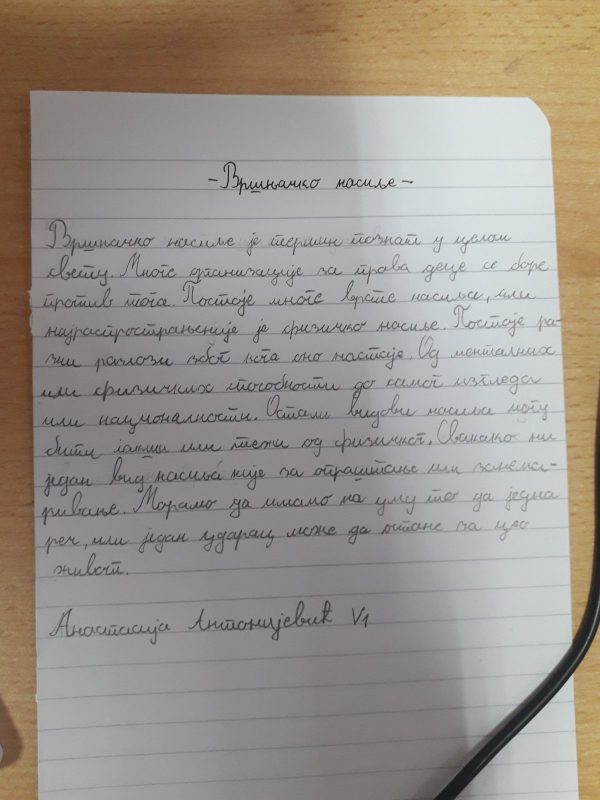 - Вршњачко насиље -
Вршњачко насиље је термин познат у целом
свету. Многе организације за права деце се боре
против тога. Постоје многе врсте насиља, али
најраспрострањеније је физичко насиље. Постоје ра-
зни разлози због кога оно настаје. Од менталних
или физичких способности до самог изгледа
или националности. Остали видови насиља могу
бити лакши или тежи од физичког. Свакако ни
један вид насиља није за опраштање или занема-
ривање. Морамо да имамо на уму то да једна
реч, или један ударац може да остане за цео
живот.
Анастасија Антонијевић V1